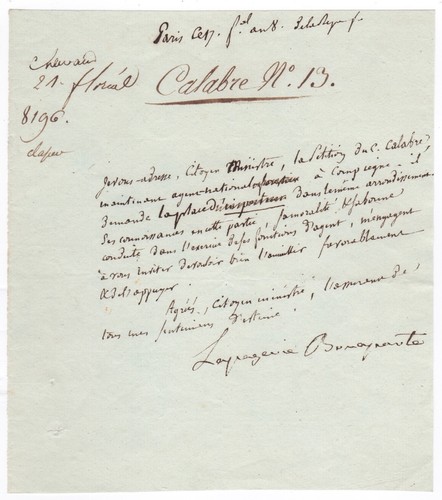 Paris Ce 17. f.al an 8. De la Rep. f.
21. floréal
Calabre N.º 13.
8196.
classer
Je vous adresse, Citoyen Ministre, la Pétition du C. Calabre
maintenant agent national à Compiegne. il
Demande la place d'inspecteur dans le même arrondissement.
Ses connoissances en cette partie, sa moralité & sa bonne
conduite dans l'exercice de ses fonctions d'agent, m'engagent
à vous inviter de vouloir bien l'accueillir favorablement
& de l'appuyer.
Agréés, Citoyen ministre, l'assurance de
tous mes sentimens d'estime.
Lapagerie Bonaparte